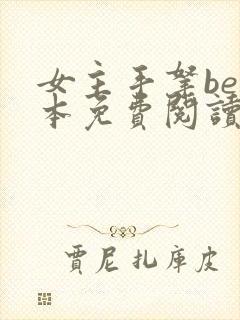 女主手拏be
本免費閱讀
賈尼扎庫皮